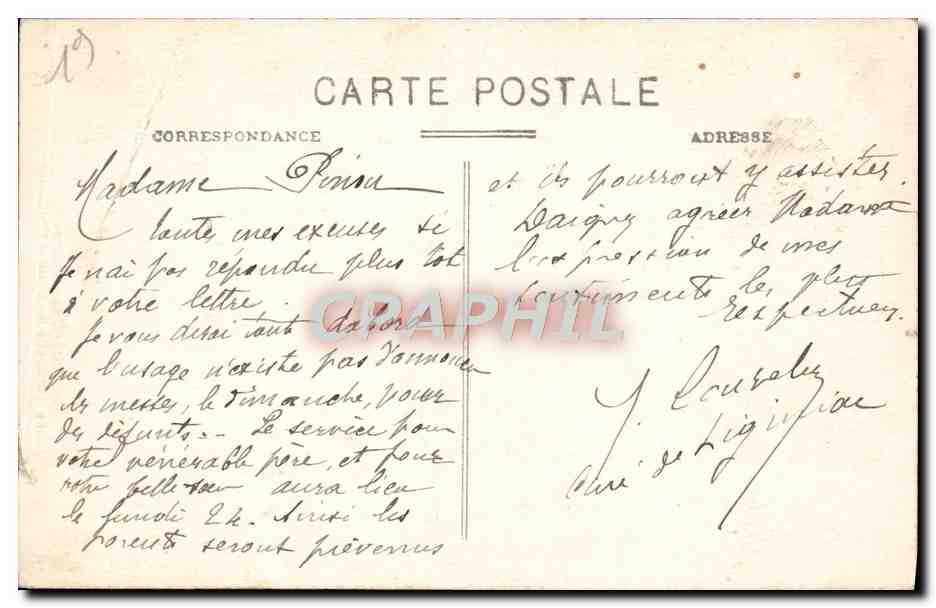 19
CARTE POSTALE
CORRESPONDANCE
ADRESSE
Madame
toutes mes excuses si
je n'ai pas répondu plus tôt
à votre lettre.
Je vous dirai tout d'abord
que l'usage n'existe pas d'annoncer
des messes, le dimanche, pour
des défunts. - Le service pour
votre vénérable père, et pour
votre belle sœur aura lieu
le lundi 24. Ainsi les
parents seront prévenus
et ils pourront y assister.
Daigny agréer Madame
l'expression de mes
sentiments les plus
respectueux.
J.
Curé de
CPAPHIL